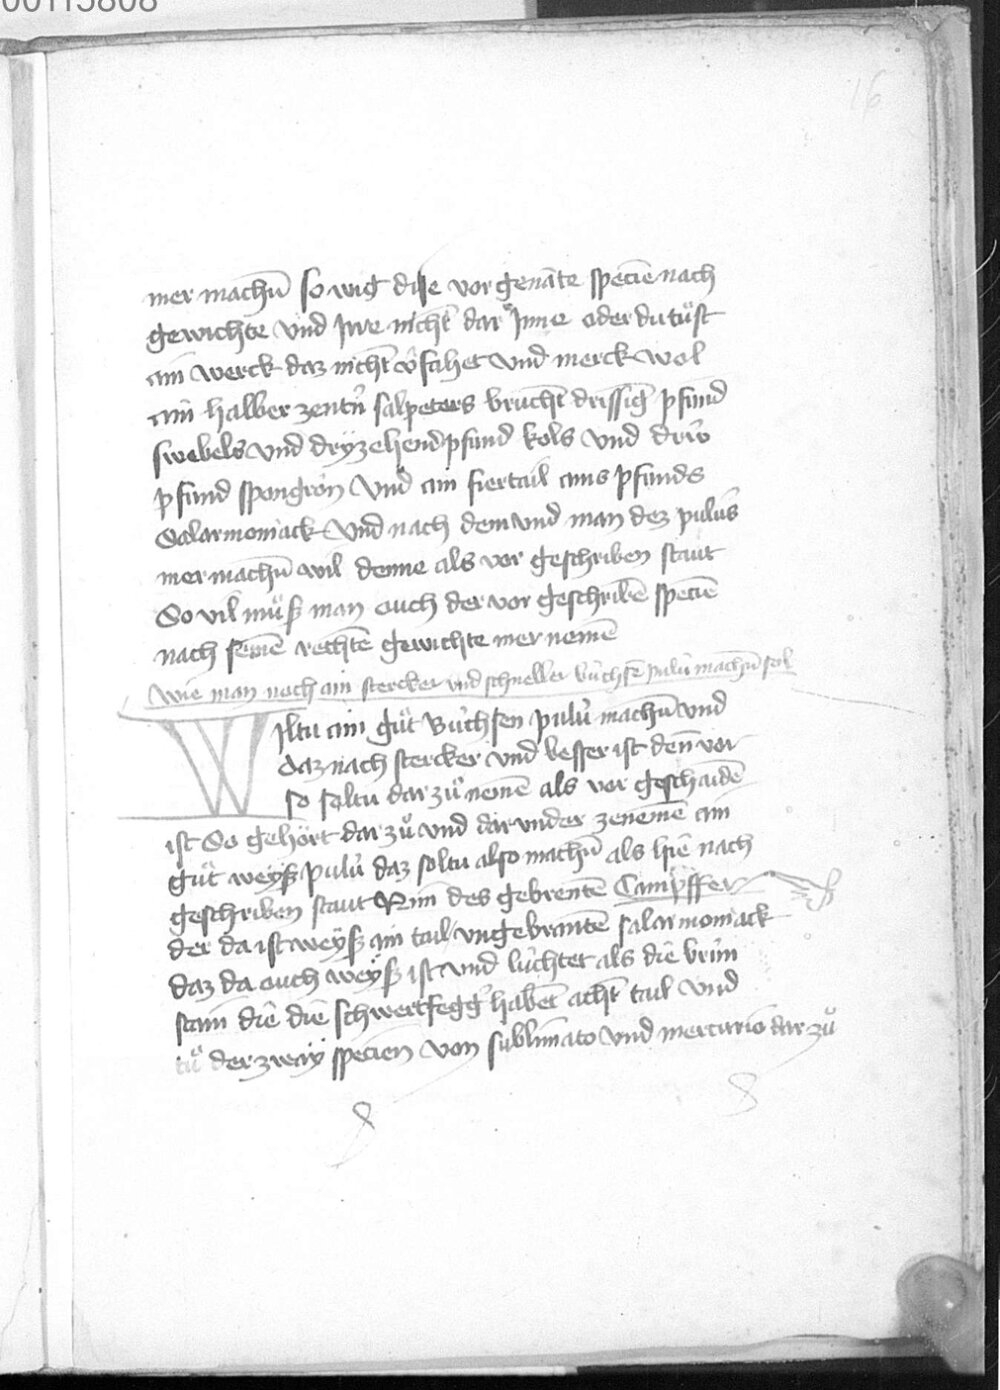 00115808
16
mer machn̄ so wig dise vor genāte specīe nach
gewichte vnd jrre nicht dar jnne oder du tůst
ain werck daz nicht v̄fahet vnd merck wol
ain halber zentn̄ salpeters brucht drissig pfund
swebels vnd dryzehend pfund kols vnd drw̄
pfund spongrön vnd ain fiertail ains pfunds
Salarmoniack vnd nach dem vnd man dez puluˢ
mer machn̄ wil denne als vor geschriben staut
So vil můß man ouch der vor geschribē specīe
nach seinē rechtē gewichte mer nemē
wie man noch ain stercker vnd schneller büchsē pulū machn̄ sol
Wiltu ain gůt Büchsen pulū machn̄ vnd
daz noch stercker vnd besser ist den̄ vor
so soltu dar zů nemē als vor geschaidē
ist So gehört dar zů vnd dar vnder zenemē ain
gůt weyß pulū daz soltu also machn̄ als hie nach
geschriben staut Nim des gebrentē Campffer
der da ist weyß ain tail vngebrantē salarmoniack
daz da ouch weyß ist vnd lüchtet als die brün
stain die die schwertfegḡ habēt acht tail vnd
tů der zway specien von sublimato vnd mercurio dar zů